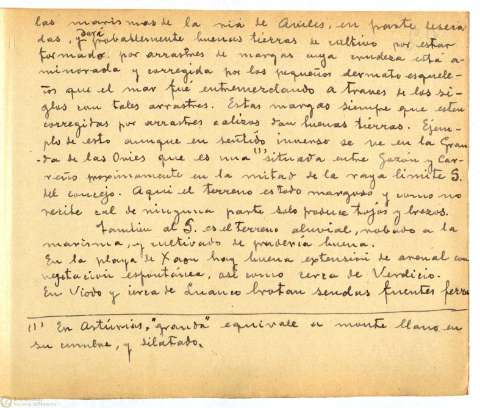 las marismas de la ría de Aviles, en parte deseca
das, dará probablemente buenas tierras de cultivo por estar
formado por arrastres de margas cuya crudeza está a-
minorada y corregida por los pequeños dermato esquele-
tos que el mar fue entremezclando a traves de los si-
glos con tales arrastres. Estas margas siempre que esten
corregidas por arrastres calizos dan buenas tierras. Ejem-
plo de esto aunque en sentido inverso se ve en la Gran-
da de las Onies que es una (1) situada entre Gozón y Ca-
rreño proximamente en la mitad de la raya limite S.
del concejo. Aqui el terreno es todo margoso y como no
recibe cal de ninguna parte solo produce tojos y brezos.
Tambien al S. es el terreno aluvial, robado a la
marisma, y cultivado de pradería buena.
En la playa de Xagu hay buena extensión de arenal con
vegetación espontánea, así como cerca de Verdicio.
En Viodo y cerca de Luanco brotan sendas fuentes ferru
(1) En Asturias, "granda" equivale a monte llano en
su cumbre, y dilatado.